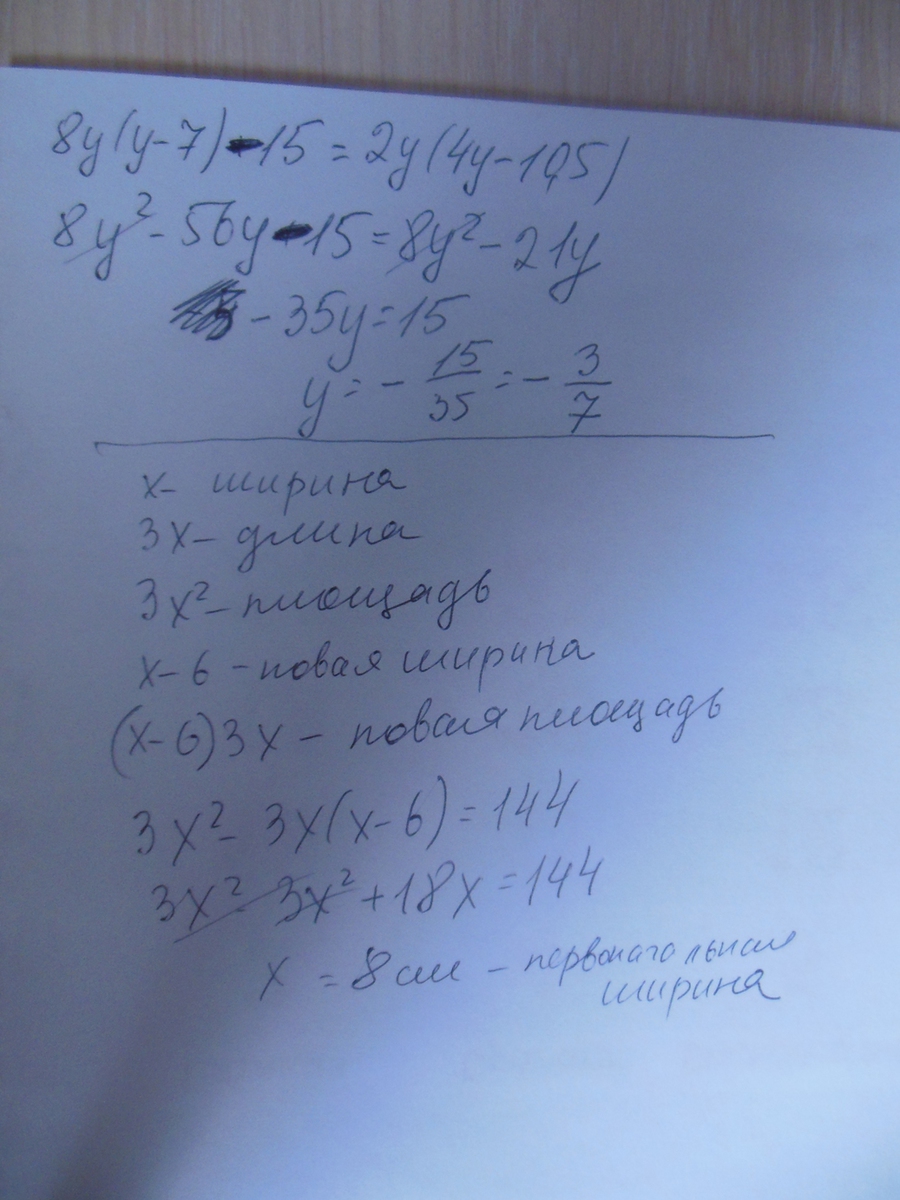 8y(y-7)-15=2y(4y-10,5)
8y²-56y-15=8y²-21y
-35y=15
y=-15/35=-3/7
x- ширина
3x- длина
3x²- площадь
x-6 -новая ширина
(x-6)3x - новая площадь
3x²-3x(x-6)=144
3x²-3x²+18x=144
x = 8см - первоначальная
ширина